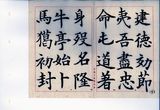 建德効節
夷吾盡忠
命屯道著
身歿名隆
牛亭始卜
馬鬣初封